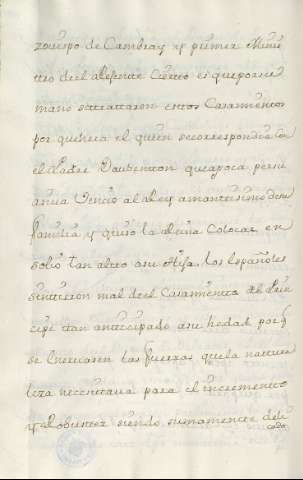 zovispo de Cambray y primer Minis
tro de el Rejente Cierto es que por su
mano se trattaron estos Casamientos
por que era el quien se correspondia co
el Padre Daubenton que a poca persu
asiva Vencio al Rey amantisimo de su
familia y quiso la Reina Colocar en
solio tan alto a su Hija. los españoles
sintieron mal de el Casamiento del Prin
cipe tan anticipado a su hedad por q
se Enervasen las fuerzas que la nattura
leza necesitava para el incremento
y Robustez siendo sumamente deli
cado